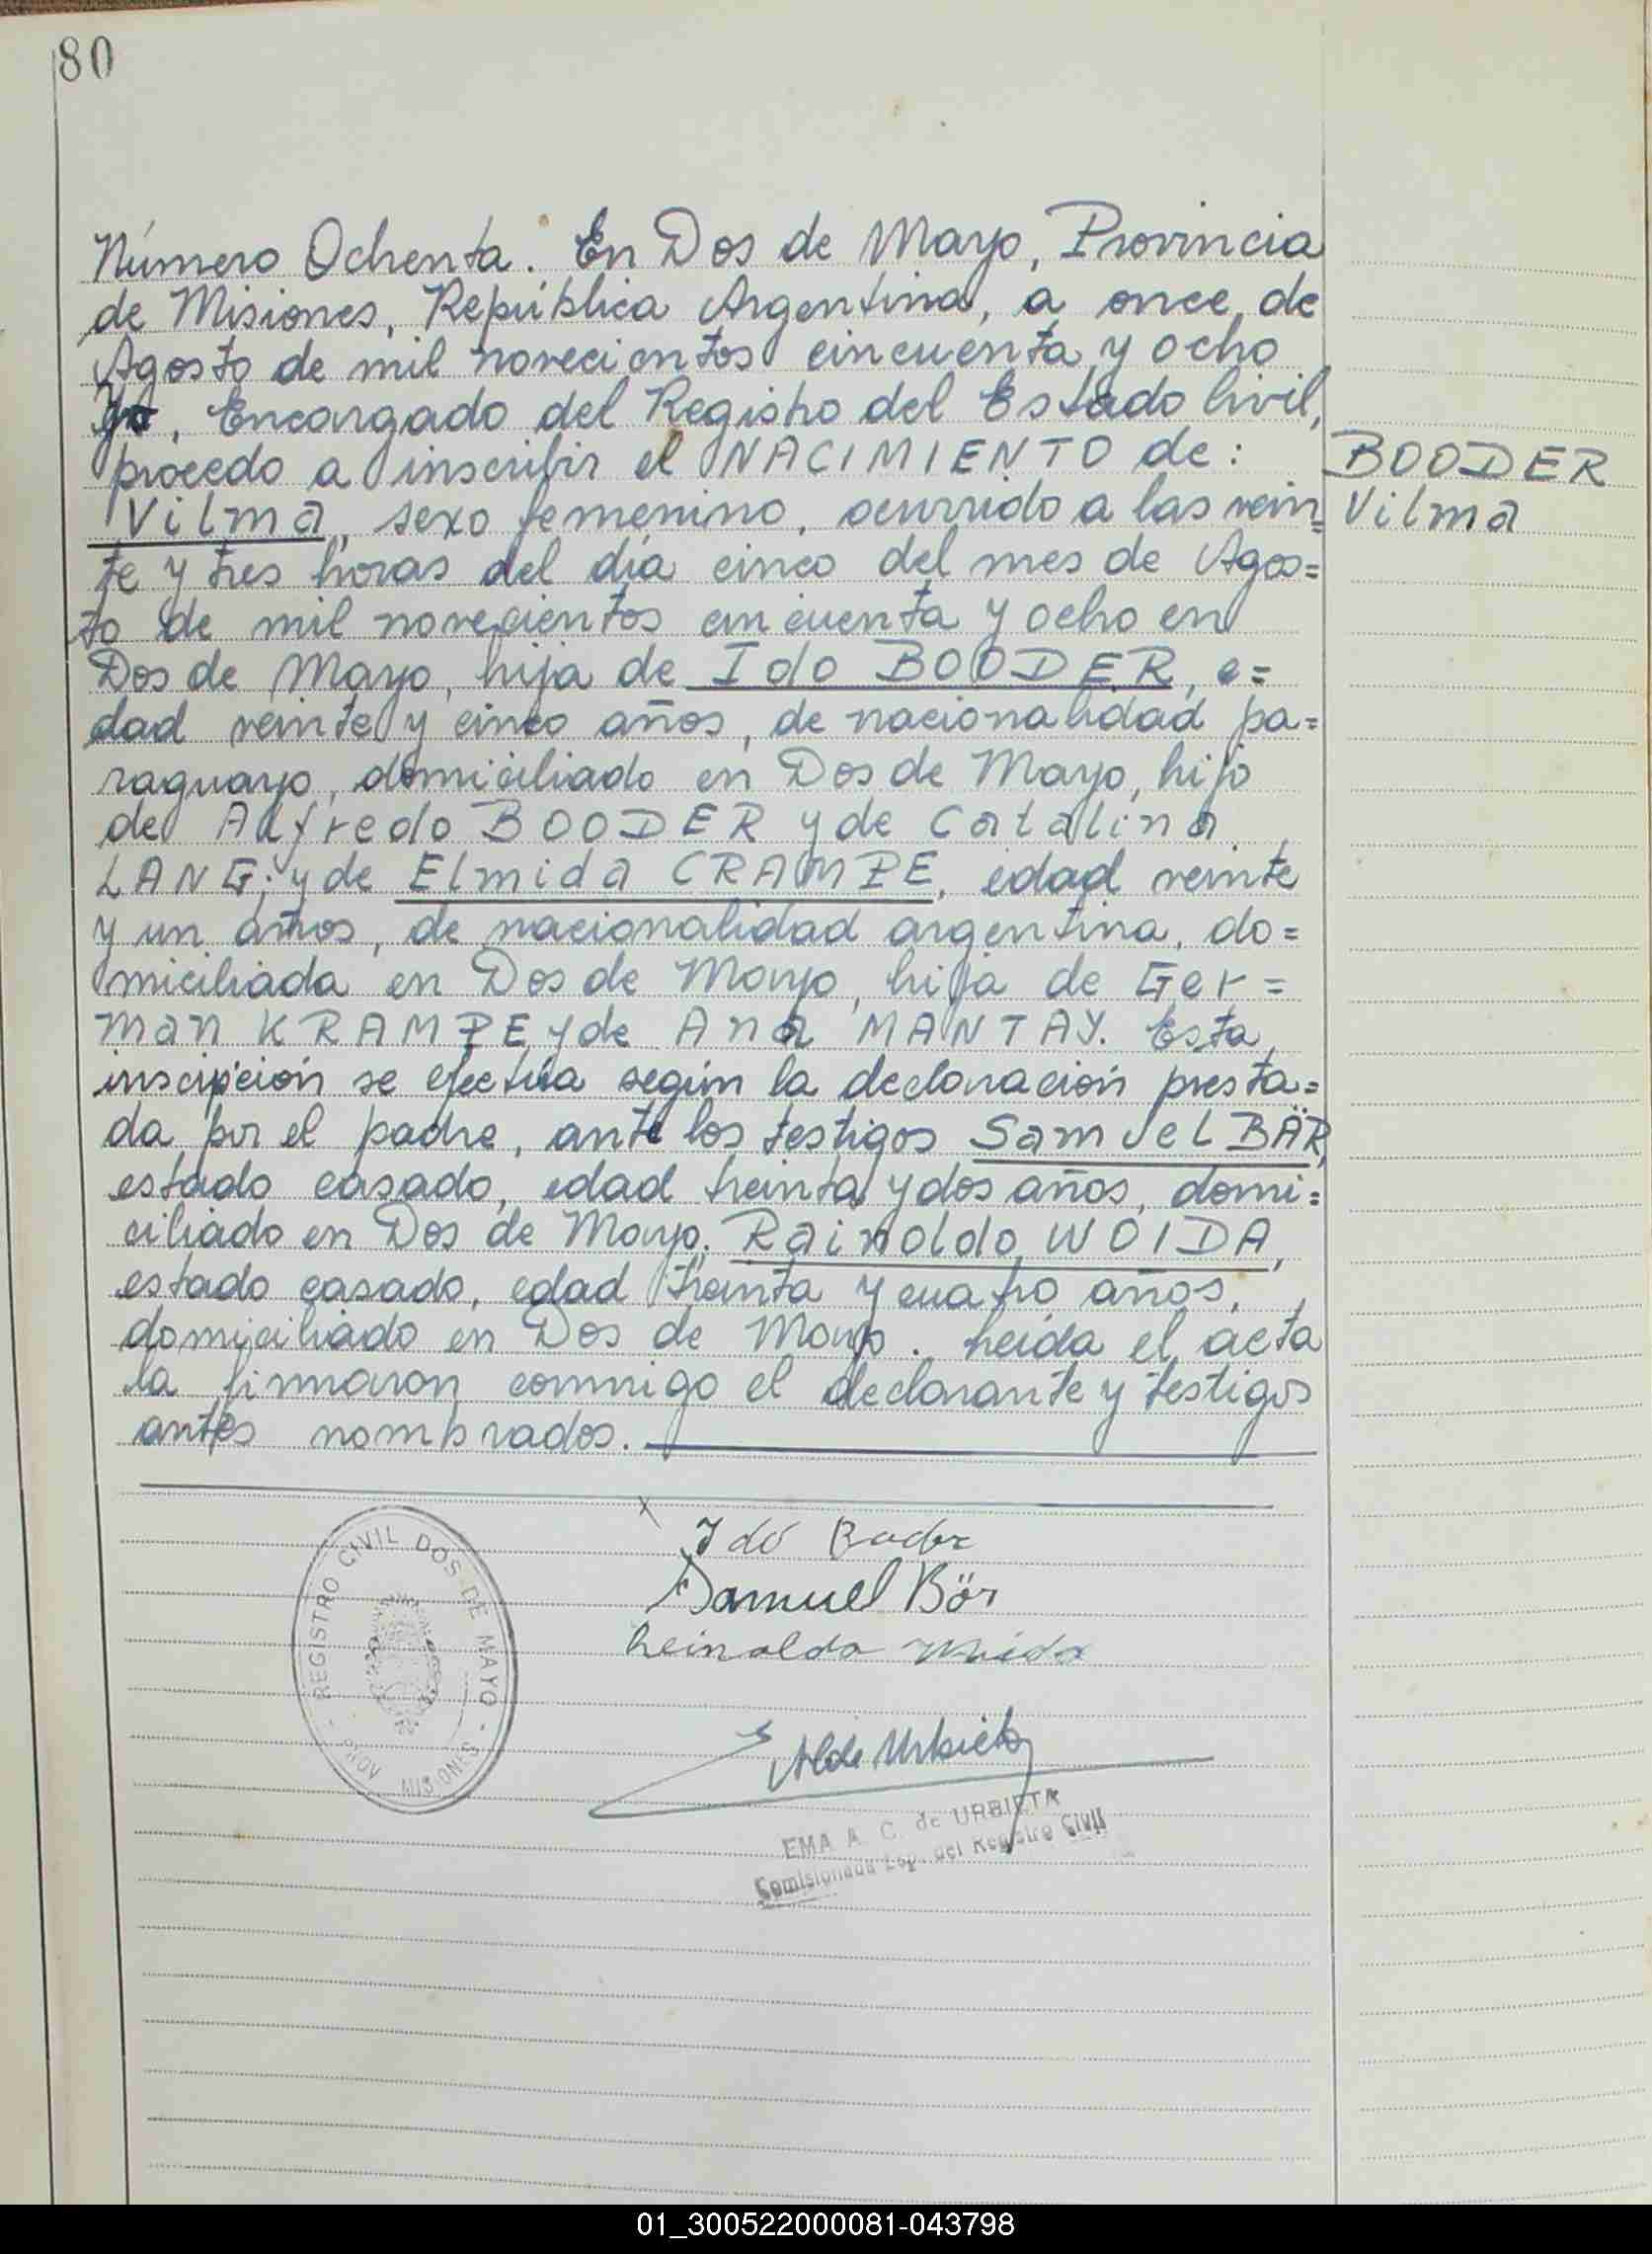 80
Número Ochenta. En Dos de Mayo, Provincia
de Misiones, República Argentina, a once de
Agosto de mil novecientos cincuenta y ocho
Yo, Encargado del Registro del Estado Civil,
procedo a inscribir el NACIMIENTO de:
BOODER
Vilma, sexo femenino, ocurrido a las vein=
Vilma
te y tres horas del día cinco del mes de Agos=
to de mil novecientos cincuenta y ocho en
Dos de Mayo, hija de Ido BOODER, e=
dad veinte y cinco años, de nacionalidad pa=
raguayo, domiciliado en Dos de Mayo, hijo
de Alfredo BOODER y de Catalina
LANG; y de Elmida CRAMPE, edad veinte
y un años, de nacionalidad argentina, do=
miciliada en Dos de Mayo, hija de Ger=
man KRAMPE y de Ana MANTAY. Esta
inscripción se efectúa según la declaración presta=
da por el padre, ante los testigos Samuel BÄR,
estado casado, edad treinta y dos años, domi=
ciliado en Dos de Mayo, Rainoldo WOIDA,
estado casado, edad treinta y cuatro años,
domiciliado en Dos de Mayo. Leída el acta
la firmaron conmigo el declarante y testigos
antes nombrados.
Ido Boder
Samuel Bär
Reinoldo
REGISTRO CIVIL DOS DE MAYO
PROV. MISIONES
EMA A. C. de URBIETA
Comisionada Esp. del Registro Civil
01_300522000081-043798